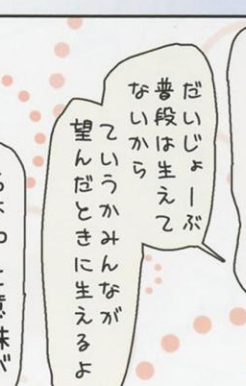 だいじょーぶ
普段は生えて
ないから
ていうかみんなが
望んだときに生えるよ
意味が